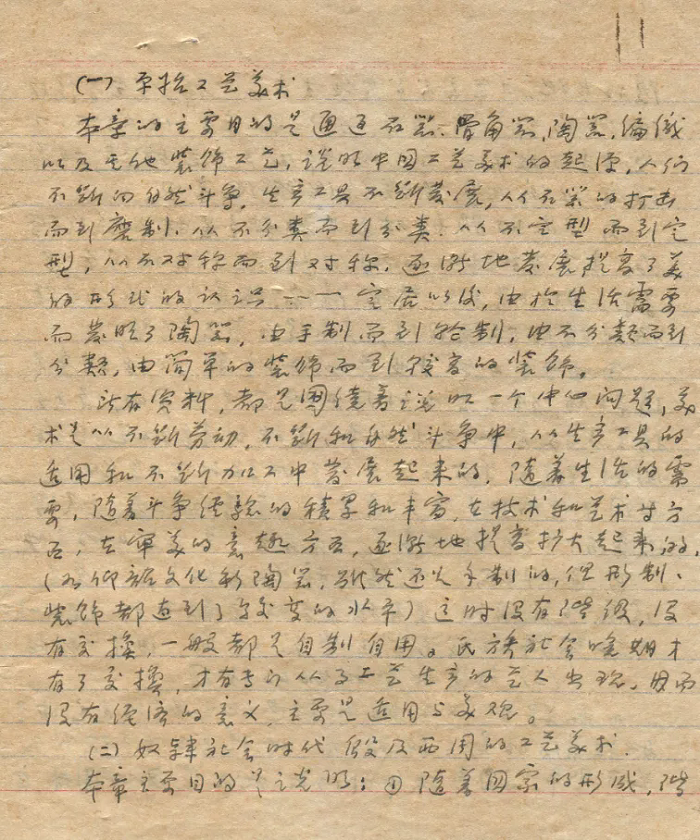 (一) 原始工艺美术
本章的主要目的是通过石器、骨角器、陶器、编織
以及其他装飾工艺, 说明中国工艺美术的起源, 人们
不断向自然斗争, 生产工具不断发展, 从石器的打击
而到磨制. 从不分类而到分类. 从不定型而到定
型, 从不对称而到对称. 逐漸地发展提高了美
的形式的认识——定居以後, 由於生活需要
而发明了陶器, 由手制而到轮制, 由不分類而到
分類, 由简单的装飾而到較高的装飾。
所有資料, 都是圍繞着说明一个中心问题, 美
术是从不断劳动, 不断和自然斗争中, 从生产工具的
适用和不断加工中发展起来的. 随着生活的需
要, 随着斗争经验的積累和丰富, 在技术和艺术方
面, 在审美的意趣方面, 逐漸地提高扩大起来的,
(如仰韶文化彩陶器, 虽然还是手制的, 但形制、
装飾都达到了高度的水平) 这时没有階级, 没
有交換, 一般都是自制自用。氏族社会晚期才
有了交換, 才有专门从事工艺生产的艺人出現. 因而
没有经济的意义, 主要是适用与美观。
(二) 奴隸社会时代 殷及西周的工艺美术.
本章主要目的是说明: ① 随着国家的形成, 階